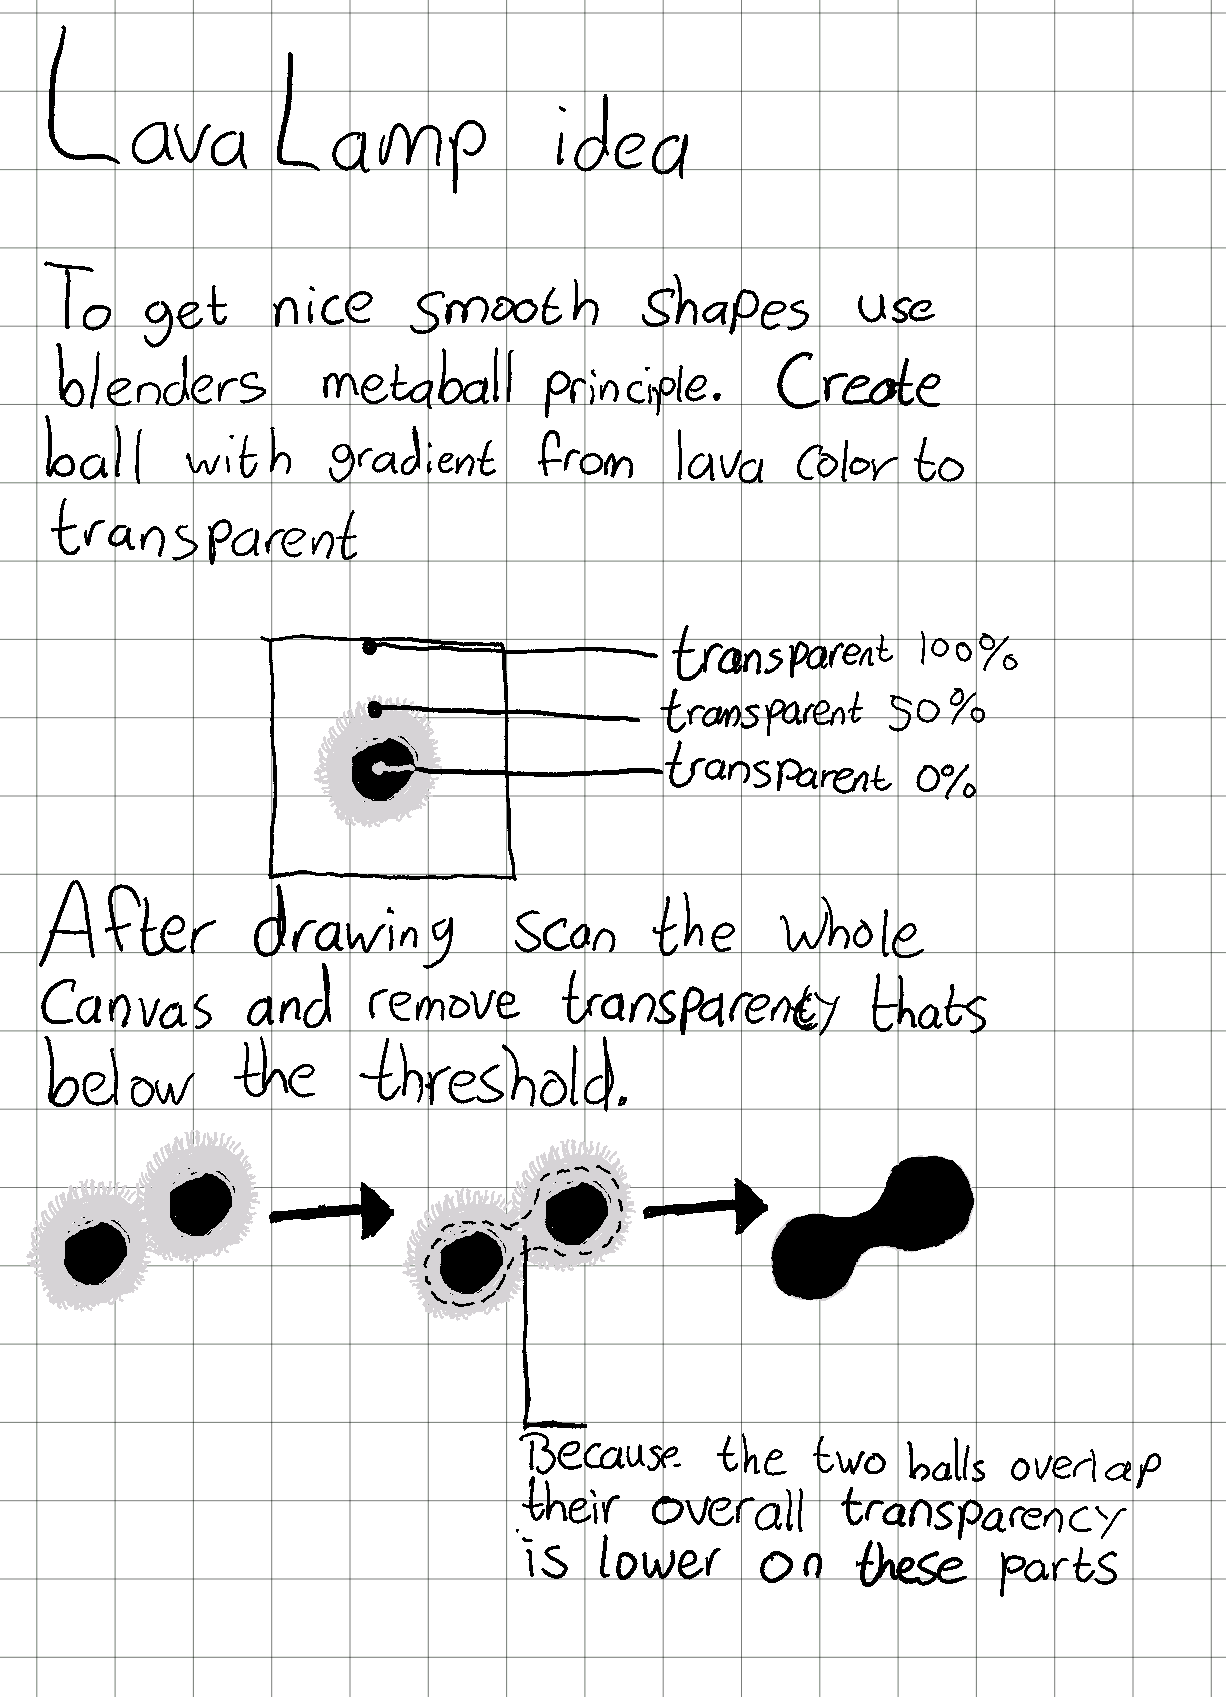 Lava Lamp idea
To get nice smooth shapes use
blenders metaball principle. Create
ball with gradient from lava color to
transparent
transparent 100%
transparent 50%
transparent 0%
After drawing scan the whole
Canvas and remove transparency thats
below the threshold.
Because the two balls overlap
their overall transparency
is lower on these parts